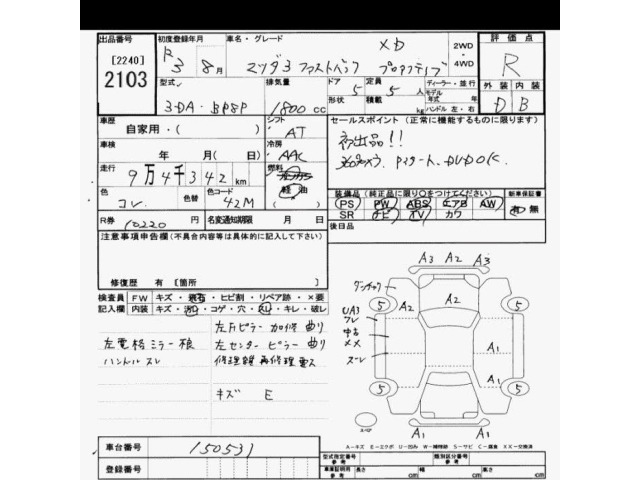 出品番号 初度登録年月 車名・グレード 評価点
[2240] R 3 8月 マツダ3 ファストバック XD プロアクティブ 2WD・4WD R
2103
型式 排気量 ドア 5 定員 5人 ディーラー・並行 外装 内装
3DA-BP8P 1800cc 形状 積載 kg モデル年式 年式 ハンドル 左・右 D B
車歴 シフト セールスポイント (正常に機能するものに限ります)
自家用・( ) AT 初出品!!
車検 冷房
年 月(日) AAC 360°カメラ Pスタート、DVDOK
走行 燃料
9万4千342km 軽油
色 色替 色コード 装備品 (純正品に限り○をつけてください) 新車保証書
コン 42M PS PW ABS エアB AW 有 無
SR ナビ TV カワ
R券 10220 名変通知期限 月 日 後日品
注意事項申告欄(不具合内容等は具体的に記入して下さい)
修復歴 有 [箇所 ]
A3 A2 A3
検査員 FW キズ・飛石・ヒビ割・リペア跡・X要
記入欄 内装 キズ・汚れ・コゲ・穴・スレ・キレ・破レ
5 A2 A2 5
UA3
左Fピラー 加修 曲り
左電格ミラー 損 左センターピラー 曲り
ハンドル スレ 修理跡 再修理要ス
中古
XX
A1
ズレ
5 A1 5
キズ E
A1 A1
スペア
車台番号 150531 A-キズ E-エクボ U-凹み W-補修跡 S-サビ C-腐食 XX-交換済
型式指定番号 参考 類別区分番号 参考
登録番号 車庫証明用 参考 長さ cm 幅 cm 高さ cm